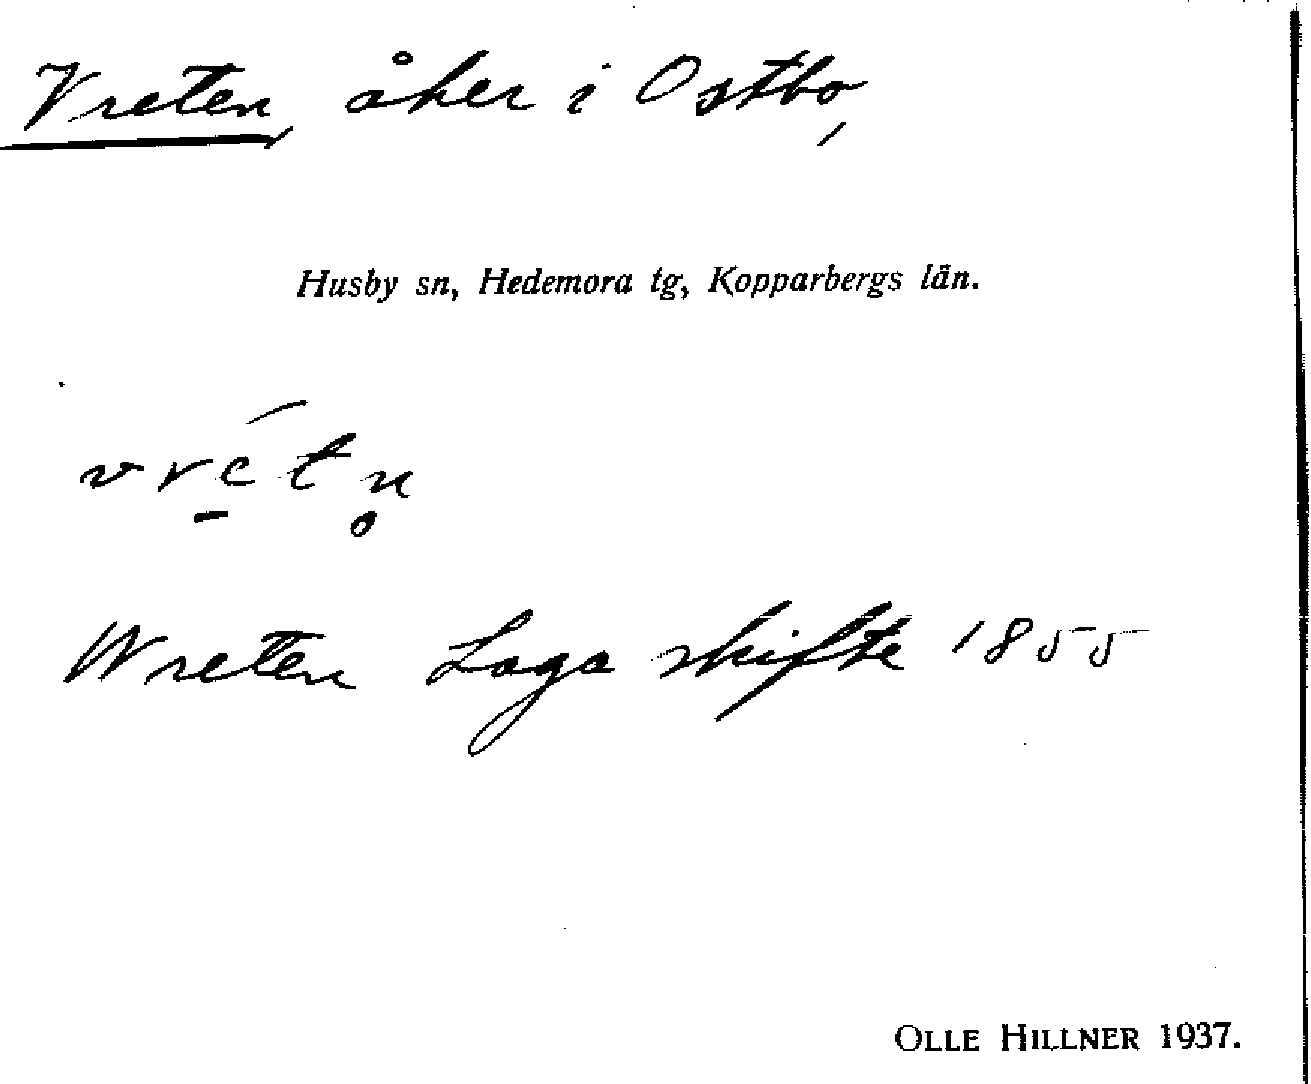 Vreten, åker i Ostbo,
Husby sn, Hedemora tg, Kopparbergs län.
vre̱´tn̥
Wreten Laga skifte 1855
OLLE HILLNER 1937.